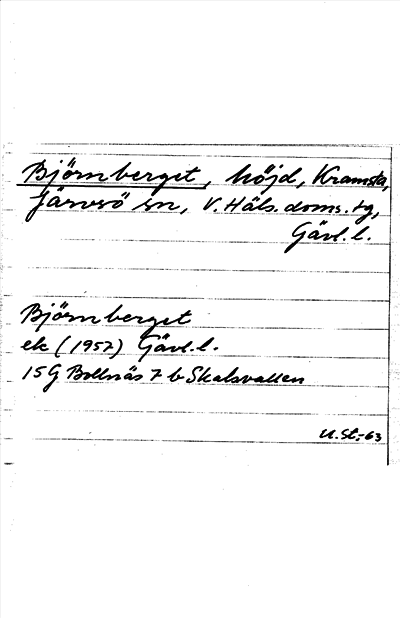 Björnberget, höjd, Kramsta,
Järvsö sn, V. Häls. doms. tg,
Gävl. l.
Björnberget
ek (1957) Gävl. l.
15 G Bollnäs 7 b Skalsvallen
U.St.-63